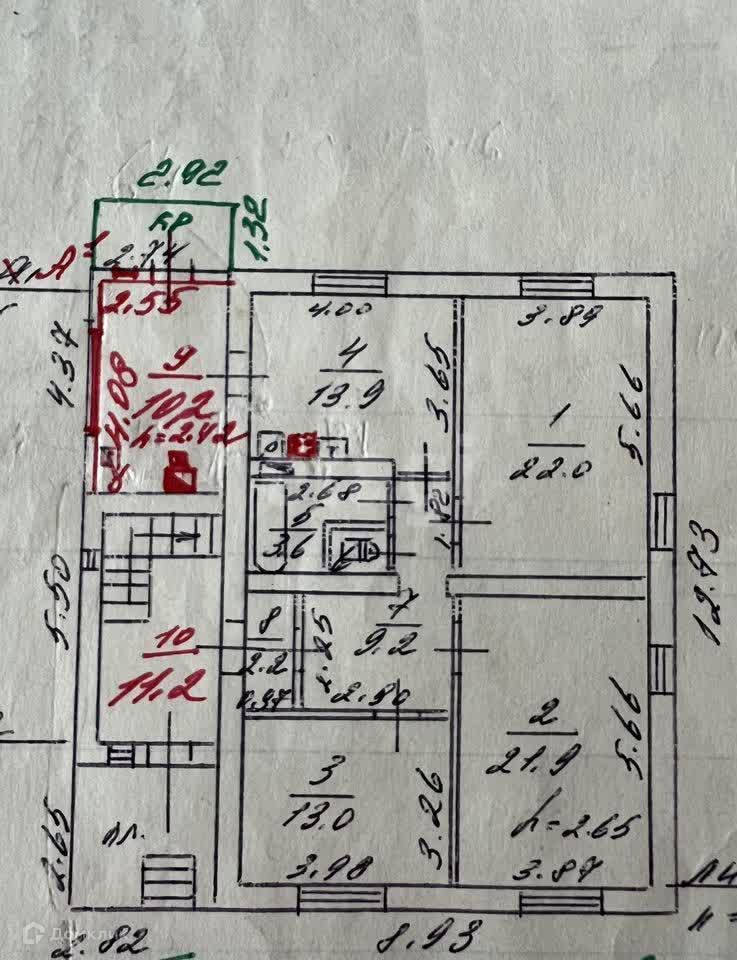 2.92
кр
1.32
2.74
2.55
4.37
4.08
9
10.2
h=2.42
4.00
4
13.9
3.65
3.89
1
22.0
5.66
2.68
5
3.6
12.93
5.50
10
11.2
8
2.2
0.97
2.25
7
9.2
2.90
2
21.9
5.66
h=2.65
3.87
3
13.0
3.26
3.98
2.65
пл.
2.82
8.93